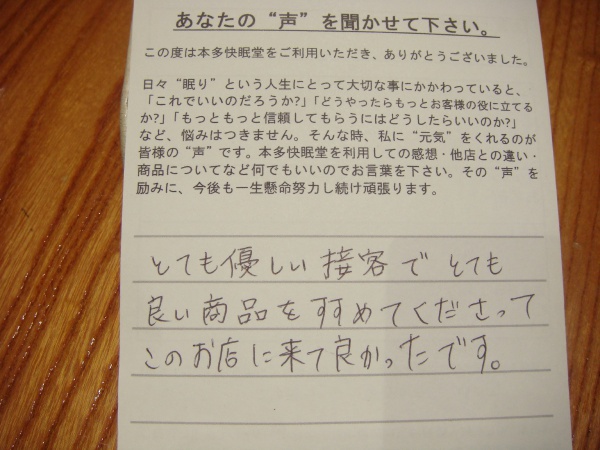 あなたの“声”を聞かせて下さい。
この度は本多快眠堂をご利用いただき、ありがとうございました。
日々“眠り”という人生にとって大切な事にかかわっていると、
「これでいいのだろうか?」「どうやったらもっとお客様の役に立てる
か?」「もっともっと信頼してもらうにはどうしたらいいのか?」
など、悩みはつきません。そんな時、私に“元気”をくれるのが
皆様の“声”です。本多快眠堂を利用しての感想・他店との違い・
商品についてなど何でもいいのでお言葉を下さい。その“声”を
励みに、今後も一生懸命努力し続け頑張ります。
とても優しい接客でとても
良い商品をすすめてくださって
このお店に来て良かったです。